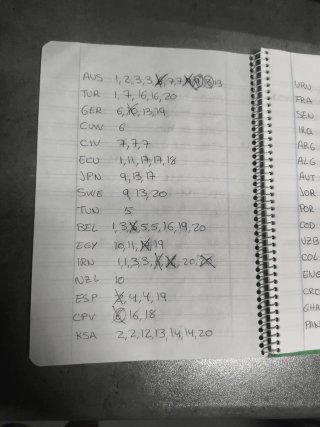 AUS 1, 2, 3, 3, 7, 7, 13
TUR 1, 7, 16, 16, 20
GER 6, 13, 19
CUW 6
CIV 7, 7, 7
ECU 1, 11, 17, 17, 18
JPN 9, 13, 17
SWE 9, 13, 20
TUN 5
BEL 1, 3, 5, 5, 16, 19, 20
EGY 10, 11, 19
IRN 1, 1, 3, 3, 20
NZL 10
ESP 4, 4, 19
CPV 16, 18
KSA 2, 2, 12, 13, 14, 14, 20
URU
FRA
SEN
IRQ
ARG
ALG
AUT
JOR
POR
COD
UZB
COL
ENG
CRO
GHA
PAN